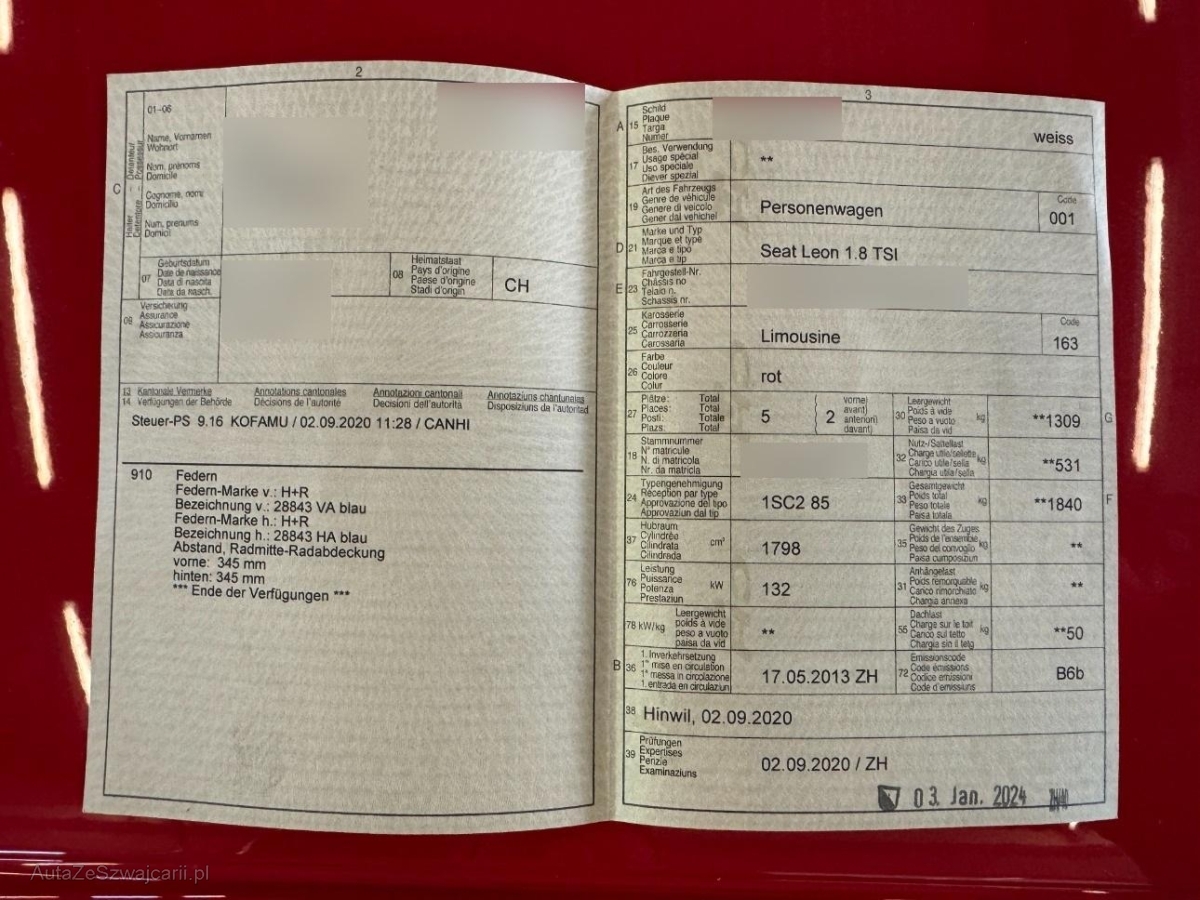 2
01–06
Name, Vornamen
Wohnort
Nom, prénoms
Domicile
Cognome, nomi
Domicilio
Num, prenums
Domicil
C
Halter – Détenteur
Detentore – Possessur
07
Geburtsdatum
Date de naissance
Data di nascita
Data da nasch.
08
Heimatstaat
Pays d'origine
Paese d'origine
Stadi d'origin
CH
09
Versicherung
Assurance
Assicurazione
Assicuranza
13 Kantonale Vermerke Annotations cantonales Annotazioni cantonali Annotaziuns chantunalas
14 Verfügungen der Behörde Décisions de l'autorité Decisioni dell'autorità Disposiziuns da l'autoritad
Steuer-PS 9.16 KOFAMU / 02.09.2020 11:28 / CANHI
910 Federn
Federn-Marke v.: H+R
Bezeichnung v.: 28843 VA blau
Federn-Marke h.: H+R
Bezeichnung h.: 28843 HA blau
Abstand, Radmitte-Radabdeckung
vorne: 345 mm
hinten: 345 mm
*** Ende der Verfügungen ***
3
A 15
Schild
Plaque
Targa
Numer
weiss
17
Bes. Verwendung
Usage spécial
Uso speciale
Diever spezial
**
19
Art des Fahrzeugs
Genre de véhicule
Genere di veicolo
Gener dal vehichel
Personenwagen
Code
001
D 21
Marke und Typ
Marque et type
Marca e tipo
Marca e tip
Seat Leon 1.8 TSI
E 23
Fahrgestell-Nr.
Châssis no
Telaio n.
Schassis nr.
25
Karosserie
Carrosserie
Carrozzeria
Carossaria
Limousine
Code
163
26
Farbe
Couleur
Colore
Colur
rot
27
Plätze: Total
Places: Total
Posti: Totale
Plazs: Total
5
2
vorne)
avant)
anteriori)
davant)
30
Leergewicht
Poids à vide
Peso a vuoto
Paisa da vid
kg
**1309
G
18
Stammnummer
N° matricule
N. di matricola
Nr. da matricla
32
Nutz-/Sattellast
Charge utile/sellette
Carico utile/sella
Chargia utila/sella
kg
**531
24
Typengenehmigung
Réception par type
Approvazione del tipo
Approvaziun dal tip
1SC2 85
33
Gesamtgewicht
Poids total
Peso totale
Paisa totala
kg
**1840
F
37
Hubraum
Cylindrée
Cilindrata
Cilindrada
cm³
1798
35
Gewicht des Zuges
Poids de l'ensemble
Peso del convoglio
Paisa cumposiziun
kg
**
76
Leistung
Puissance
Potenza
Prestaziun
kW
132
31
Anhängelast
Poids remorquable
Carico rimorchiato
Chargia annexa
kg
**
78 kW/kg
Leergewicht
poids à vide
peso a vuoto
paisa da vid
**
55
Dachlast
Charge sur le toit
Carico sul tetto
Chargia sin il tetg
kg
**50
B 36
1. Inverkehrsetzung
1re mise en circulation
1a messa in circolazione
1. entrada en circulaziun
17.05.2013 ZH
72
Emissionscode
Code émissions
Codice emissioni
Code d'emissiuns
B6b
38
Hinwil, 02.09.2020
39
Prüfungen
Expertises
Perizie
Examinaziuns
02.09.2020 / ZH
03. Jan. 2024
AutaZeSzwajcarii.pl